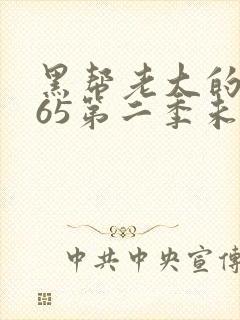 黑帮老大的
65第二季未
中共中央宣传